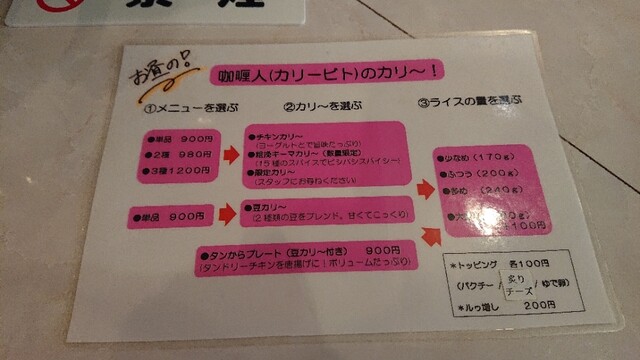 禁煙
お昼の!
咖喱人(カリービト)のカリ～!
①メニューを選ぶ
②カリ～を選ぶ
③ライスの量を選ぶ
●単品 900円
●2種 980円
●3種1200円
●チキンカリ～
(ヨーグルトとで旨味たっぷり)
●焙煎キーマカリ～(数量限定)
(15種のスパイスでビシバシスハイシー)
●限定カリ～
(スタッフにお尋ねください)
●少なめ(170g)
●ふつう(200g)
●多め (240g)
+100円
●単品 900円
●豆カリ～
(2種類の豆をブレンド。甘くてこっくり)
●タンからプレート(豆カリ～付き) 900円
(タンドリーチキンを唐揚げに!ボリュームたっぷり)
*トッピング 各100円
(パクチー/炙りチーズ/ゆで卵)
*ルゥ増し 200円